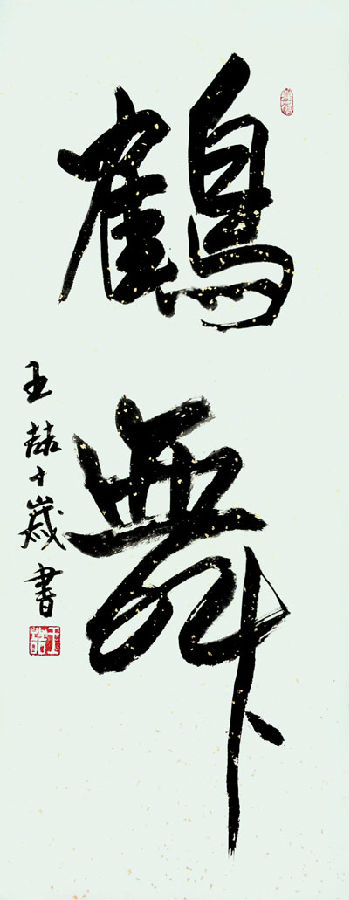 鶴舞
王喆十歲書